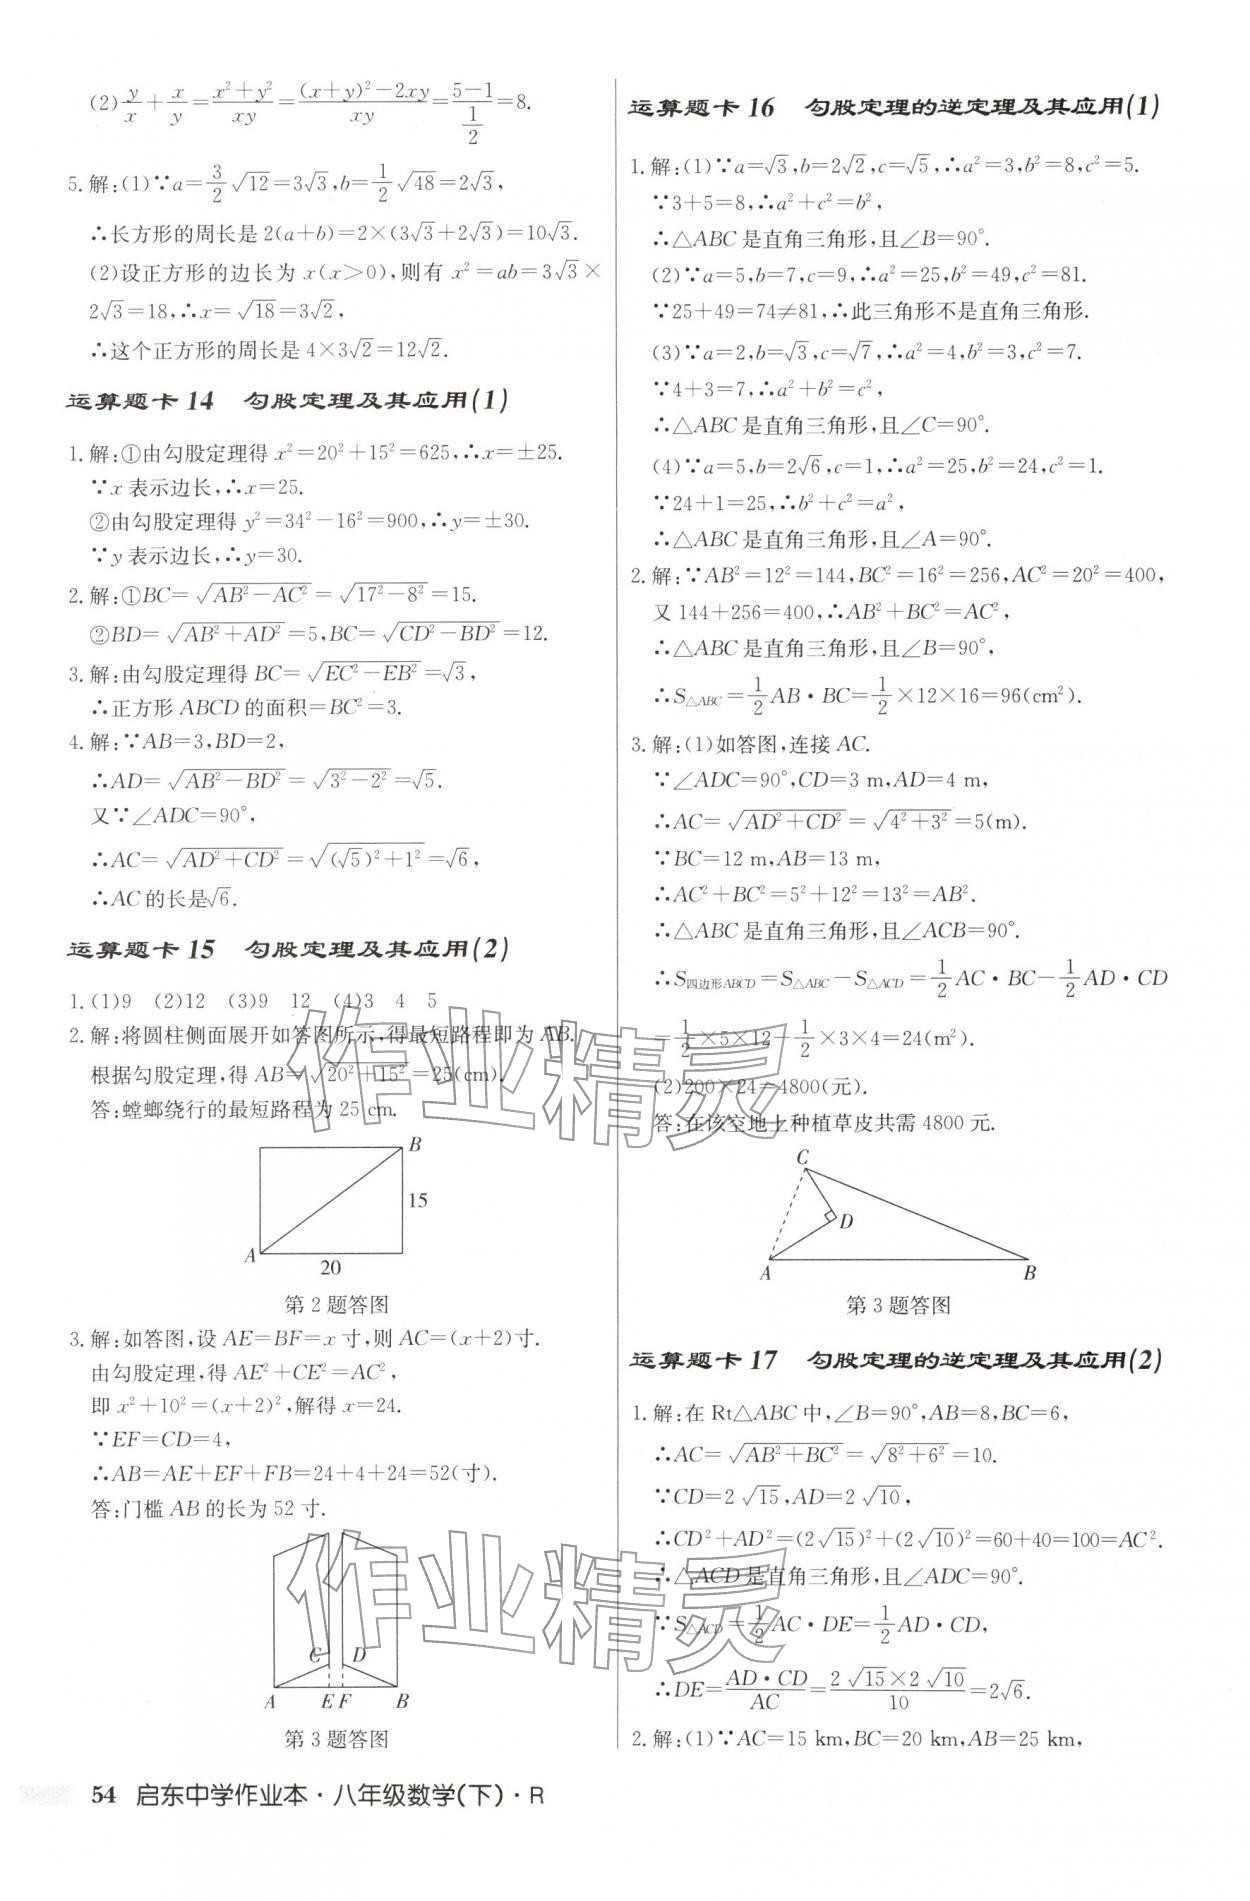 (2) y/x + x/y = (x²+y²)/xy = ((x+y)²-2xy)/xy = (5-1)/(1/2) = 8.
5. 解:(1)∵a=3/2√12=3√3,b=1/2√48=2√3,
∴长方形的周长是 2(a+b)=2×(3√3+2√3)=10√3.
(2)设正方形的边长为 x(x>0),则有 x²=ab=3√3×
2√3=18,∴x=√18=3√2,
∴这个正方形的周长是 4×3√2=12√2.
运算题卡 14 勾股定理及其应用(1)
1. 解:①由勾股定理得 x²=20²+15²=625,∴x=±25.
∵x 表示边长,∴x=25.
②由勾股定理得 y²=34²-16²=900,∴y=±30.
∵y 表示边长,∴y=30.
2. 解:①BC=√(AB²-AC²)=√(17²-8²)=15.
②BD=√(AB²+AD²)=5,BC=√(CD²-BD²)=12.
3. 解:由勾股定理得 BC=√(EC²-EB²)=√3,
∴正方形 ABCD 的面积=BC²=3.
4. 解:∵AB=3,BD=2,
∴AD=√(AB²-BD²)=√(3²-2²)=√5.
又∵∠ADC=90°,
∴AC=√(AD²+CD²)=√((√5)²+1²)=√6,
∴AC 的长是√6.
运算题卡 15 勾股定理及其应用(2)
1. (1)9 (2)12 (3)9 12 (4)3 4 5
2. 解:将圆柱侧面展开如答图所示,得最短路程即为 AB.
根据勾股定理,得 AB=√(20²+15²)=25(cm).
答:螳螂绕行的最短路程为 25 cm.
B
15
A
20
第 2 题答图
3. 解:如答图,设 AE=BF=x 寸,则 AC=(x+2)寸.
由勾股定理,得 AE²+CE²=AC²,
即 x²+10²=(x+2)²,解得 x=24.
∵EF=CD=4,
∴AB=AE+EF+FB=24+4+24=52(寸).
答:门槛 AB 的长为 52 寸.
C D
A E F B
第 3 题答图
54 启东中学作业本·八年级数学(下)·R
运算题卡 16 勾股定理的逆定理及其应用(1)
1. 解:(1)∵a=√3,b=2√2,c=√5,∴a²=3,b²=8,c²=5.
∵3+5=8,∴a²+c²=b²,
∴△ABC 是直角三角形,且∠B=90°.
(2)∵a=5,b=7,c=9,∴a²=25,b²=49,c²=81.
∵25+49=74≠81,∴此三角形不是直角三角形.
(3)∵a=2,b=√3,c=√7,∴a²=4,b²=3,c²=7.
∵4+3=7,∴a²+b²=c²,
∴△ABC 是直角三角形,且∠C=90°.
(4)∵a=5,b=2√6,c=1,∴a²=25,b²=24,c²=1.
∵24+1=25,∴b²+c²=a²,
∴△ABC 是直角三角形,且∠A=90°.
2. 解:∵AB²=12²=144,BC²=16²=256,AC²=20²=400,
又 144+256=400,∴AB²+BC²=AC²,
∴△ABC 是直角三角形,且∠B=90°,
∴S△ABC=1/2 AB·BC=1/2×12×16=96(cm²).
3. 解:(1)如答图,连接 AC.
∵∠ADC=90°,CD=3 m,AD=4 m,
∴AC=√(AD²+CD²)=√(4²+3²)=5(m).
∵BC=12 m,AB=13 m,
∴AC²+BC²=5²+12²=13²=AB².
∴△ABC 是直角三角形,且∠ACB=90°.
∴S四边形ABCD=S△ABC-S△ACD=1/2 AC·BC-1/2 AD·CD
=1/2×5×12-1/2×3×4=24(m²).
(2)200×24=4800(元).
答:在该空地上种植草皮共需 4800 元.
C
D
A B
第 3 题答图
运算题卡 17 勾股定理的逆定理及其应用(2)
1. 解:在 Rt△ABC 中,∠B=90°,AB=8,BC=6,
∴AC=√(AB²+BC²)=√(8²+6²)=10.
∵CD=2√15,AD=2√10,
∴CD²+AD²=(2√15)²+(2√10)²=60+40=100=AC².
∴△ACD 是直角三角形,且∠ADC=90°.
∵S△ACD=1/2 AC·DE=1/2 AD·CD,
∴DE=AD·CD/AC=(2√15×2√10)/10=2√6.
2. 解:(1)∵AC=15 km,BC=20 km,AB=25 km,
作业精灵
作业精灵